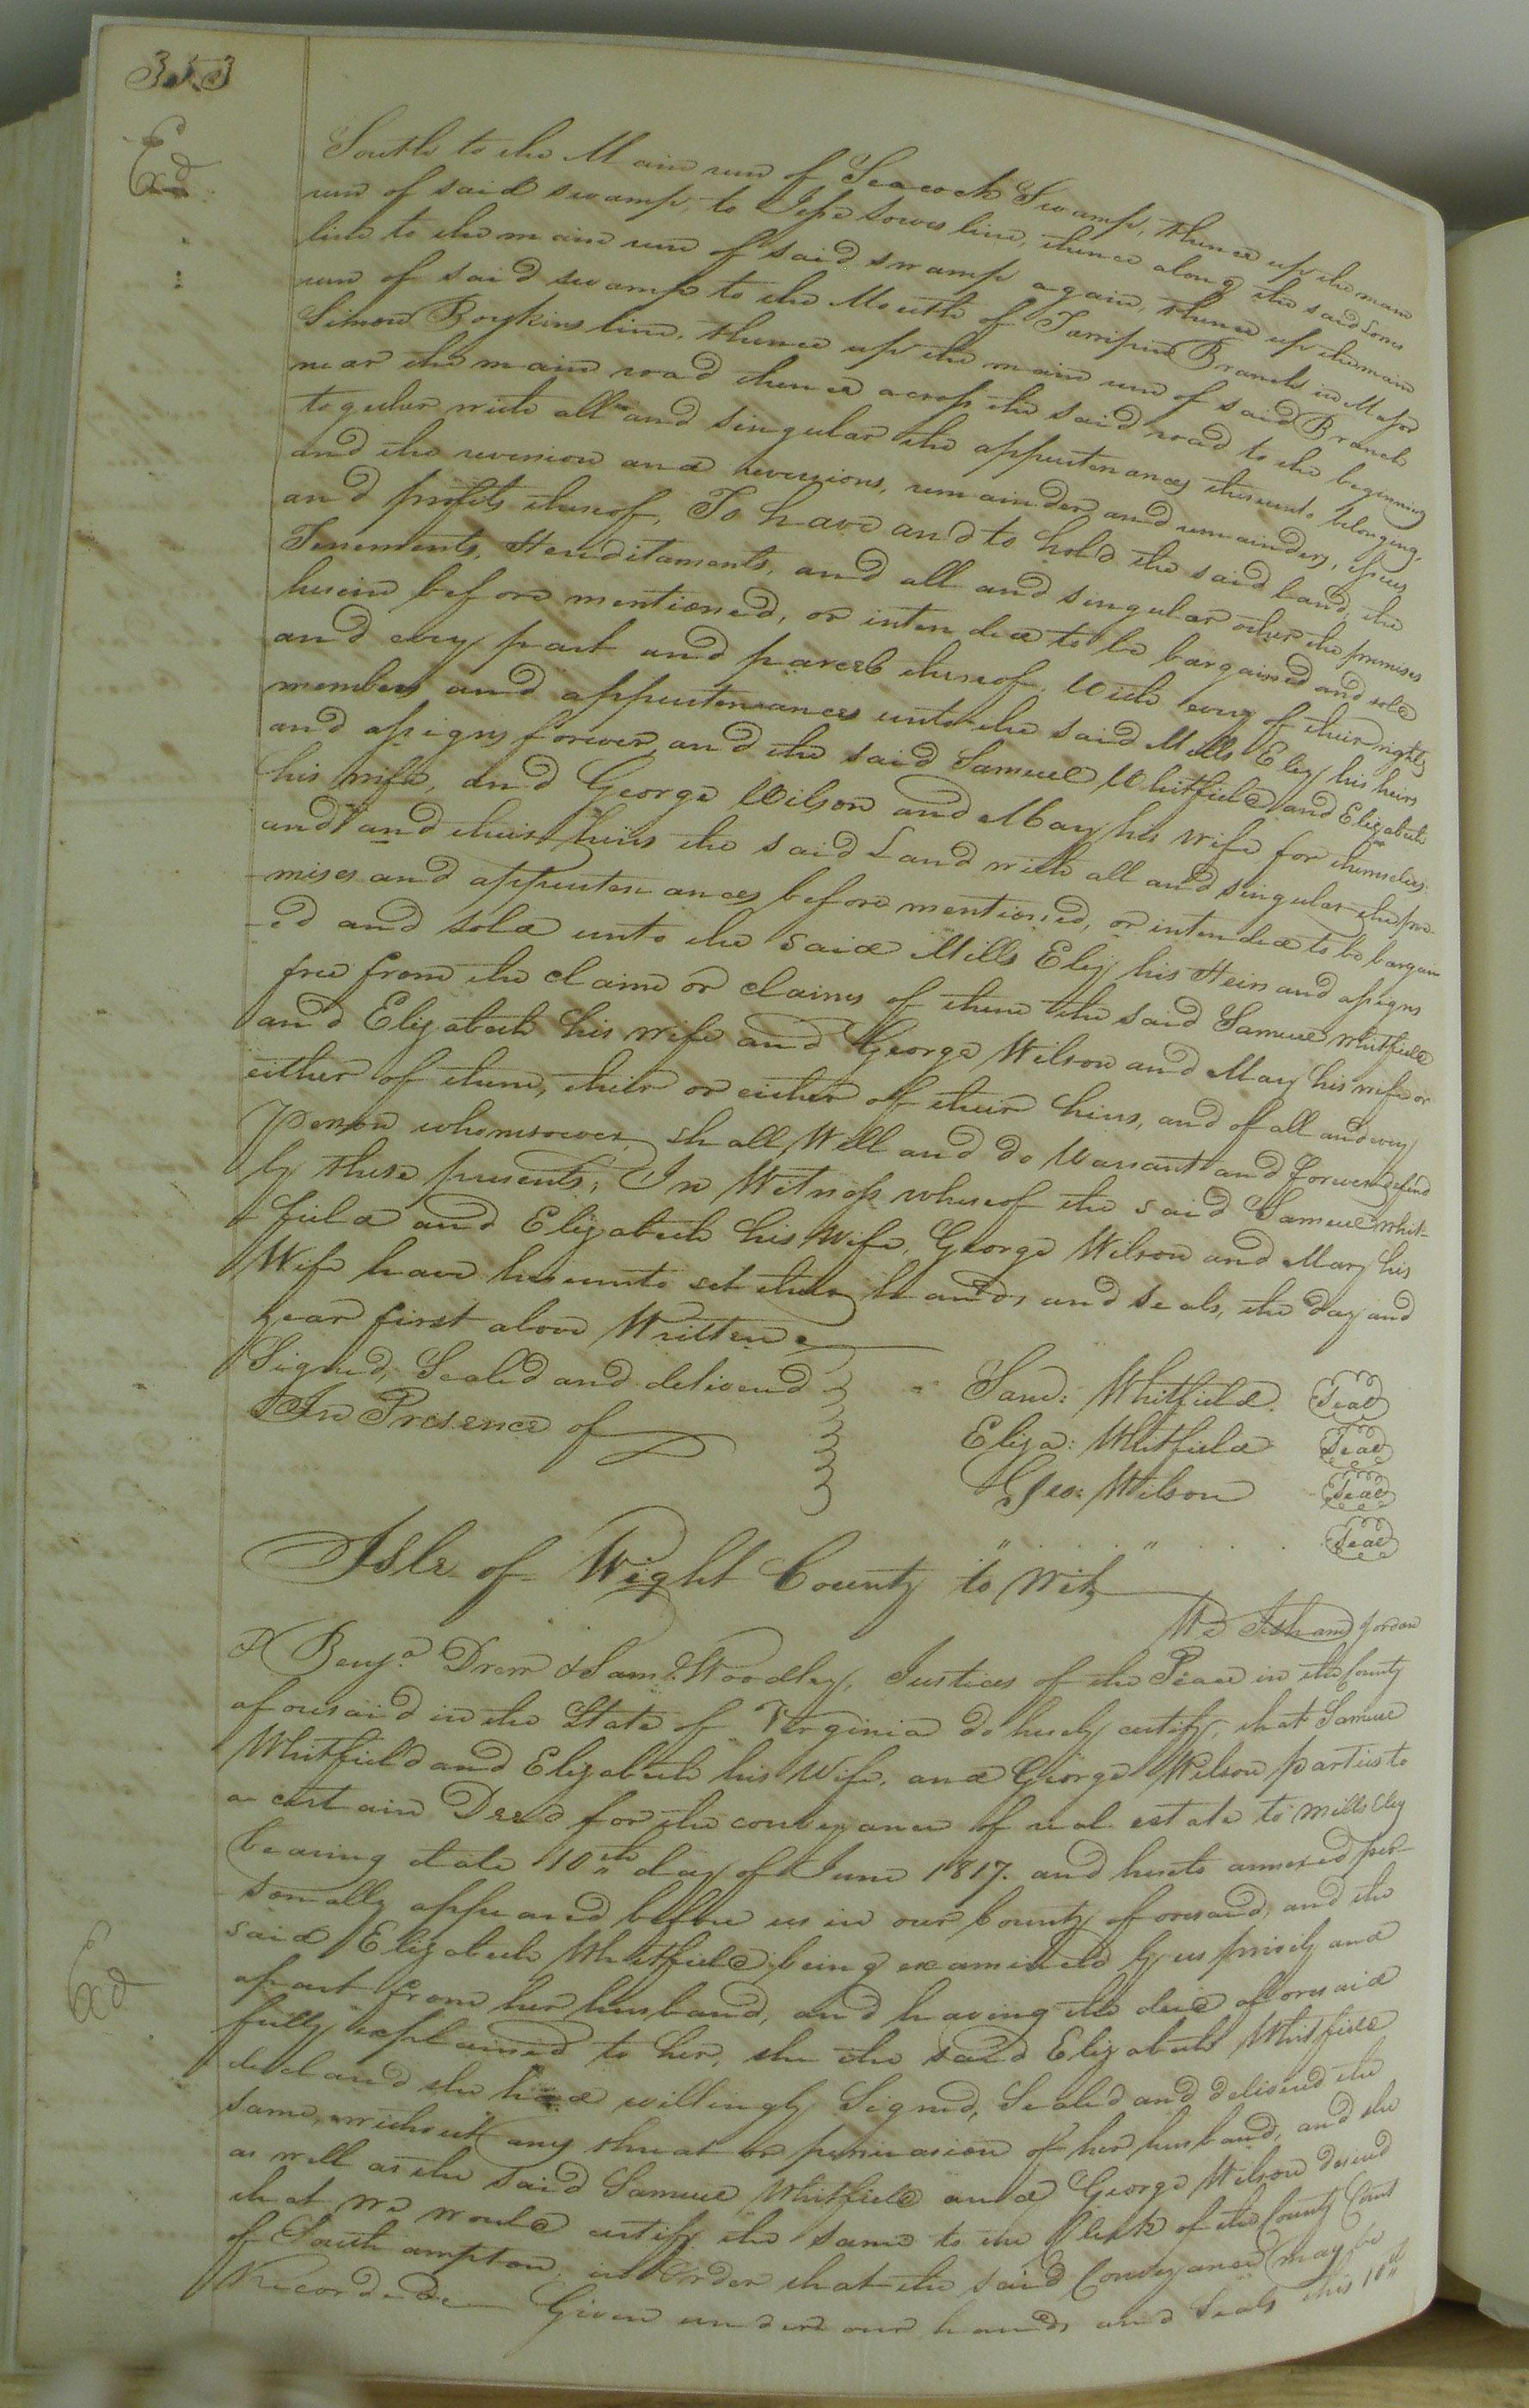 353
Exd
South to the Main run of Seacock Swamp, thence up the main
run of said swamp, to Jesse Loves line, thence along the said Loves
line to the main run of said swamp again, thence up the main
run of said swamp to the Mouth of Tarripin Branch in Major
Simon Boykins line, thence up the main run of said Branch
near the main road thence across the said road to the beginning
together with all and singular the appurtenances thereunto belonging,
and the reversion and reversions, remainder and remainders,
and profits thereof, To have and to hold the said Land, the
Tenements, Hereditaments, and all and singular other the premises
herein before mentioned, or intended to be bargained and sold
and every part and parcel thereof. With every of their rights
members and appurtenances unto the said Mills Eley his heirs
and assigns forever, and the said Samuel Whitfield and Elizabeth
his wife, and George Wilson and Mary his wife for themselves
and and their heirs the said Land with all and singular the pre-
-mises and appurtenances before mentioned, or intended to be bargain
-ed and sold unto the said Mills Eley his Heirs and assigns
free from the claim or claims of them the said Samuel Whitfield
and Elizabeth his wife and George Wilson and Mary his wife or
either of them, their or either of their heirs, and of all and every
person whomsoever, shall, Will and do Warrant and forever defend
by these presents; In Witness whereof the said Samuel Whit-
-field and Elizabeth his Wife, George Wilson and Mary his
Wife have hereunto set their hands and seals, the day and
year first above Written
Signed, Sealed and delivered
In Presence of
Saml: Whitfield. Seal
Eliza: Whitfield Seal
Geo: Wilson Seal
Seal
Isle of Wight County to Wit
We Jordan
& Benja. Drew & Saml. Woodley, Justices of the Peace in the County
aforesaid in the State of Virginia do hereby certify, that Samuel
Whitfield and Elizabeth his Wife, and George Wilson parties to
a certain Deed for the conveyance of real estate to Mills Eley
bearing date 10th day of June 1817. and hereto annexed per-
-sonally appeared before us in our County aforesaid, and the
said Elizabeth Whitfield being examined by us privily and
apart from her husband, and having the deed aforesaid
fully explained to her, she the said Elizabeth Whitfield
declared she had willingly Signed, Sealed and delivered the
same, without any threat or persuasion of her husband, and she
as well as the said Samuel Whitfield and George Wilson desired
that we would certify the same to the Clerk of the County Court
of Southampton, in order that the said Conveyance may be
Recorded Given under our hands and Seals this 10th
Exd